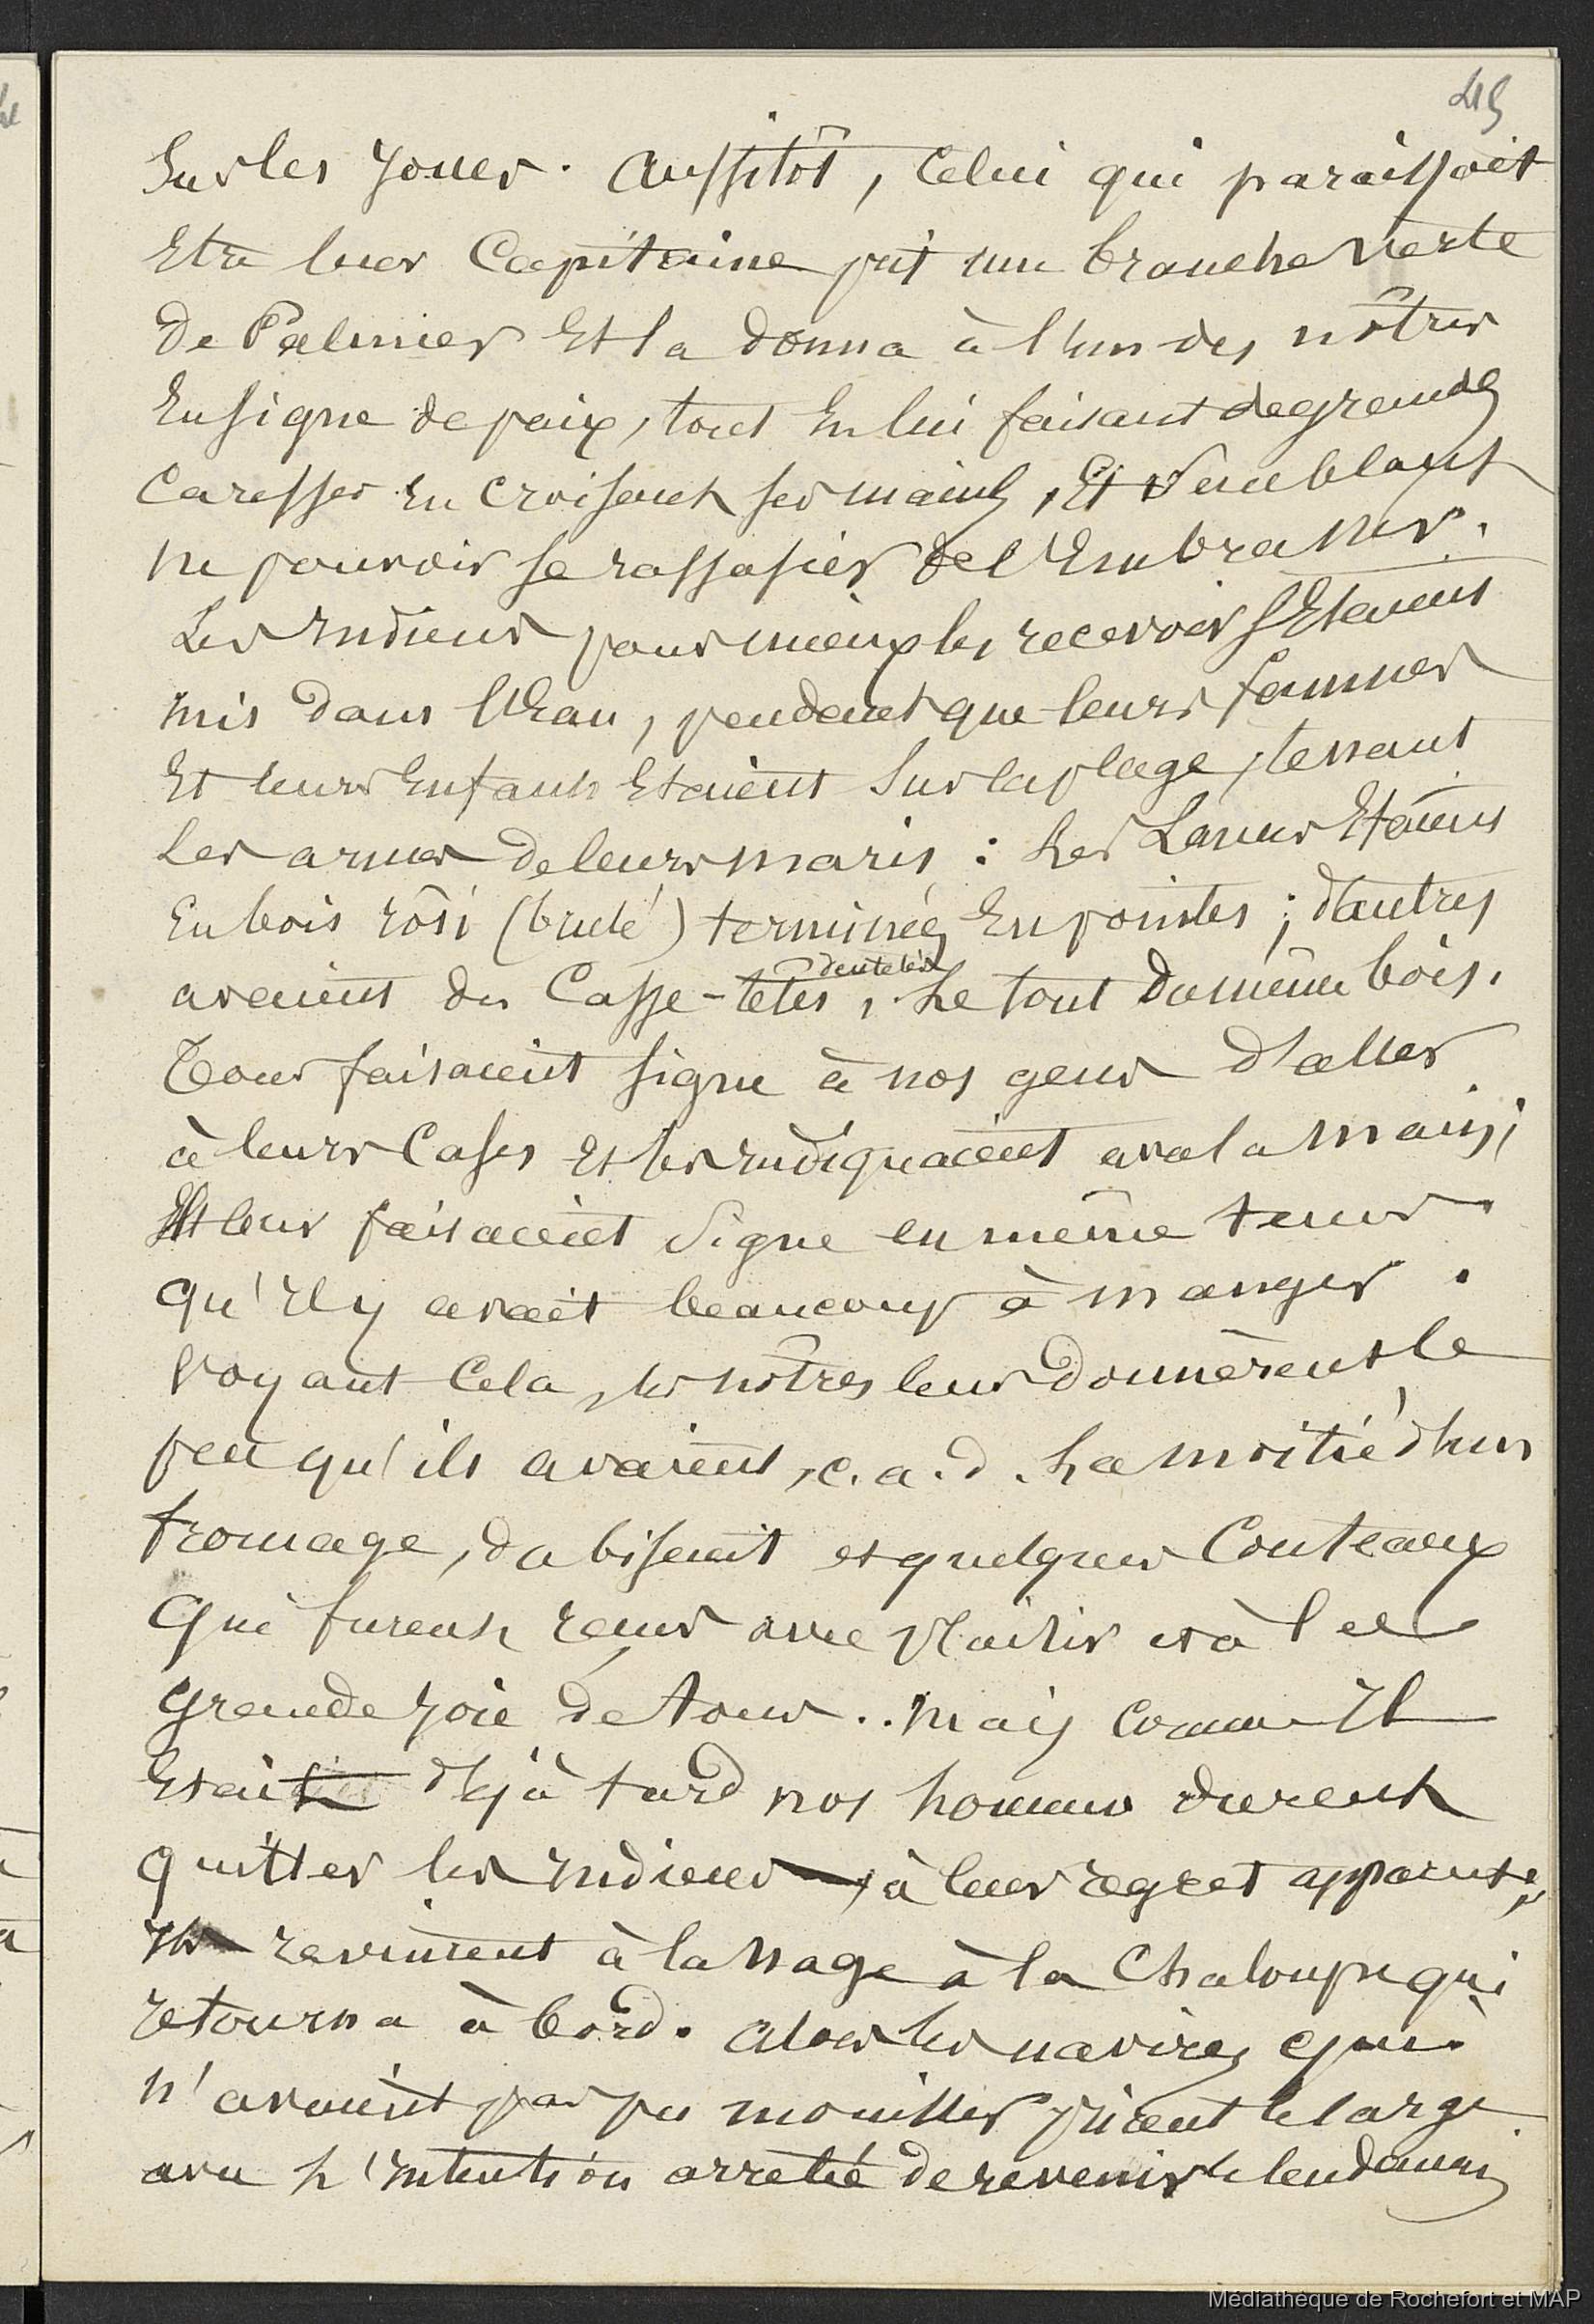 45
Sur les joues. Aussitôt, celui qui paraissait
Etre leur Capitaine prit une branche verte
de Palmier Et la donna à l'un des nôtres
En signe de paix, tout En lui faisant de grandes
caresses En croisant ses mains, Et semblant
ne pouvoir se rassasier de l'Embrasser.
Les Indiens pour mieux les recevoir s'Etaient
mis dans l'Eau, pendant que leurs femmes
Et leurs Enfants Etaient Sur la plage, tenant
Les armes de leurs maris : Les Lances Etaient
En bois rôti (brulé) terminées En pointes ; d'autres
avaient des Casse-têtes dentelés, Le tout du même bois.
Tous faisaient signe à nos gens d'aller
à leurs Cases Et les Indiquaient avec la main ;
Et leur faisaient Signe en même tems
qu'Il y avait beaucoup à manger.
Voyant Cela, les nôtres leur donnèrent le
peu qu'ils avaient, c. a. d. La moitié d'un
fromage, du biscuit et quelques Couteaux
Qui furent reçus avec plaisir et à la
grande joie de tous.. Mais comme Il
Etait déjà tard nos hommes durent
quitter les Indiens, à leur regret apparent ;
Ils revinrent à la nage à la Chaloupe qui
retourna à bord. Alors les navires qui
n'avaient pas pu mouiller prirent le large
avec L'Intention arrêtée de revenir le lendemain
Médiathèque de Rochefort et MAP